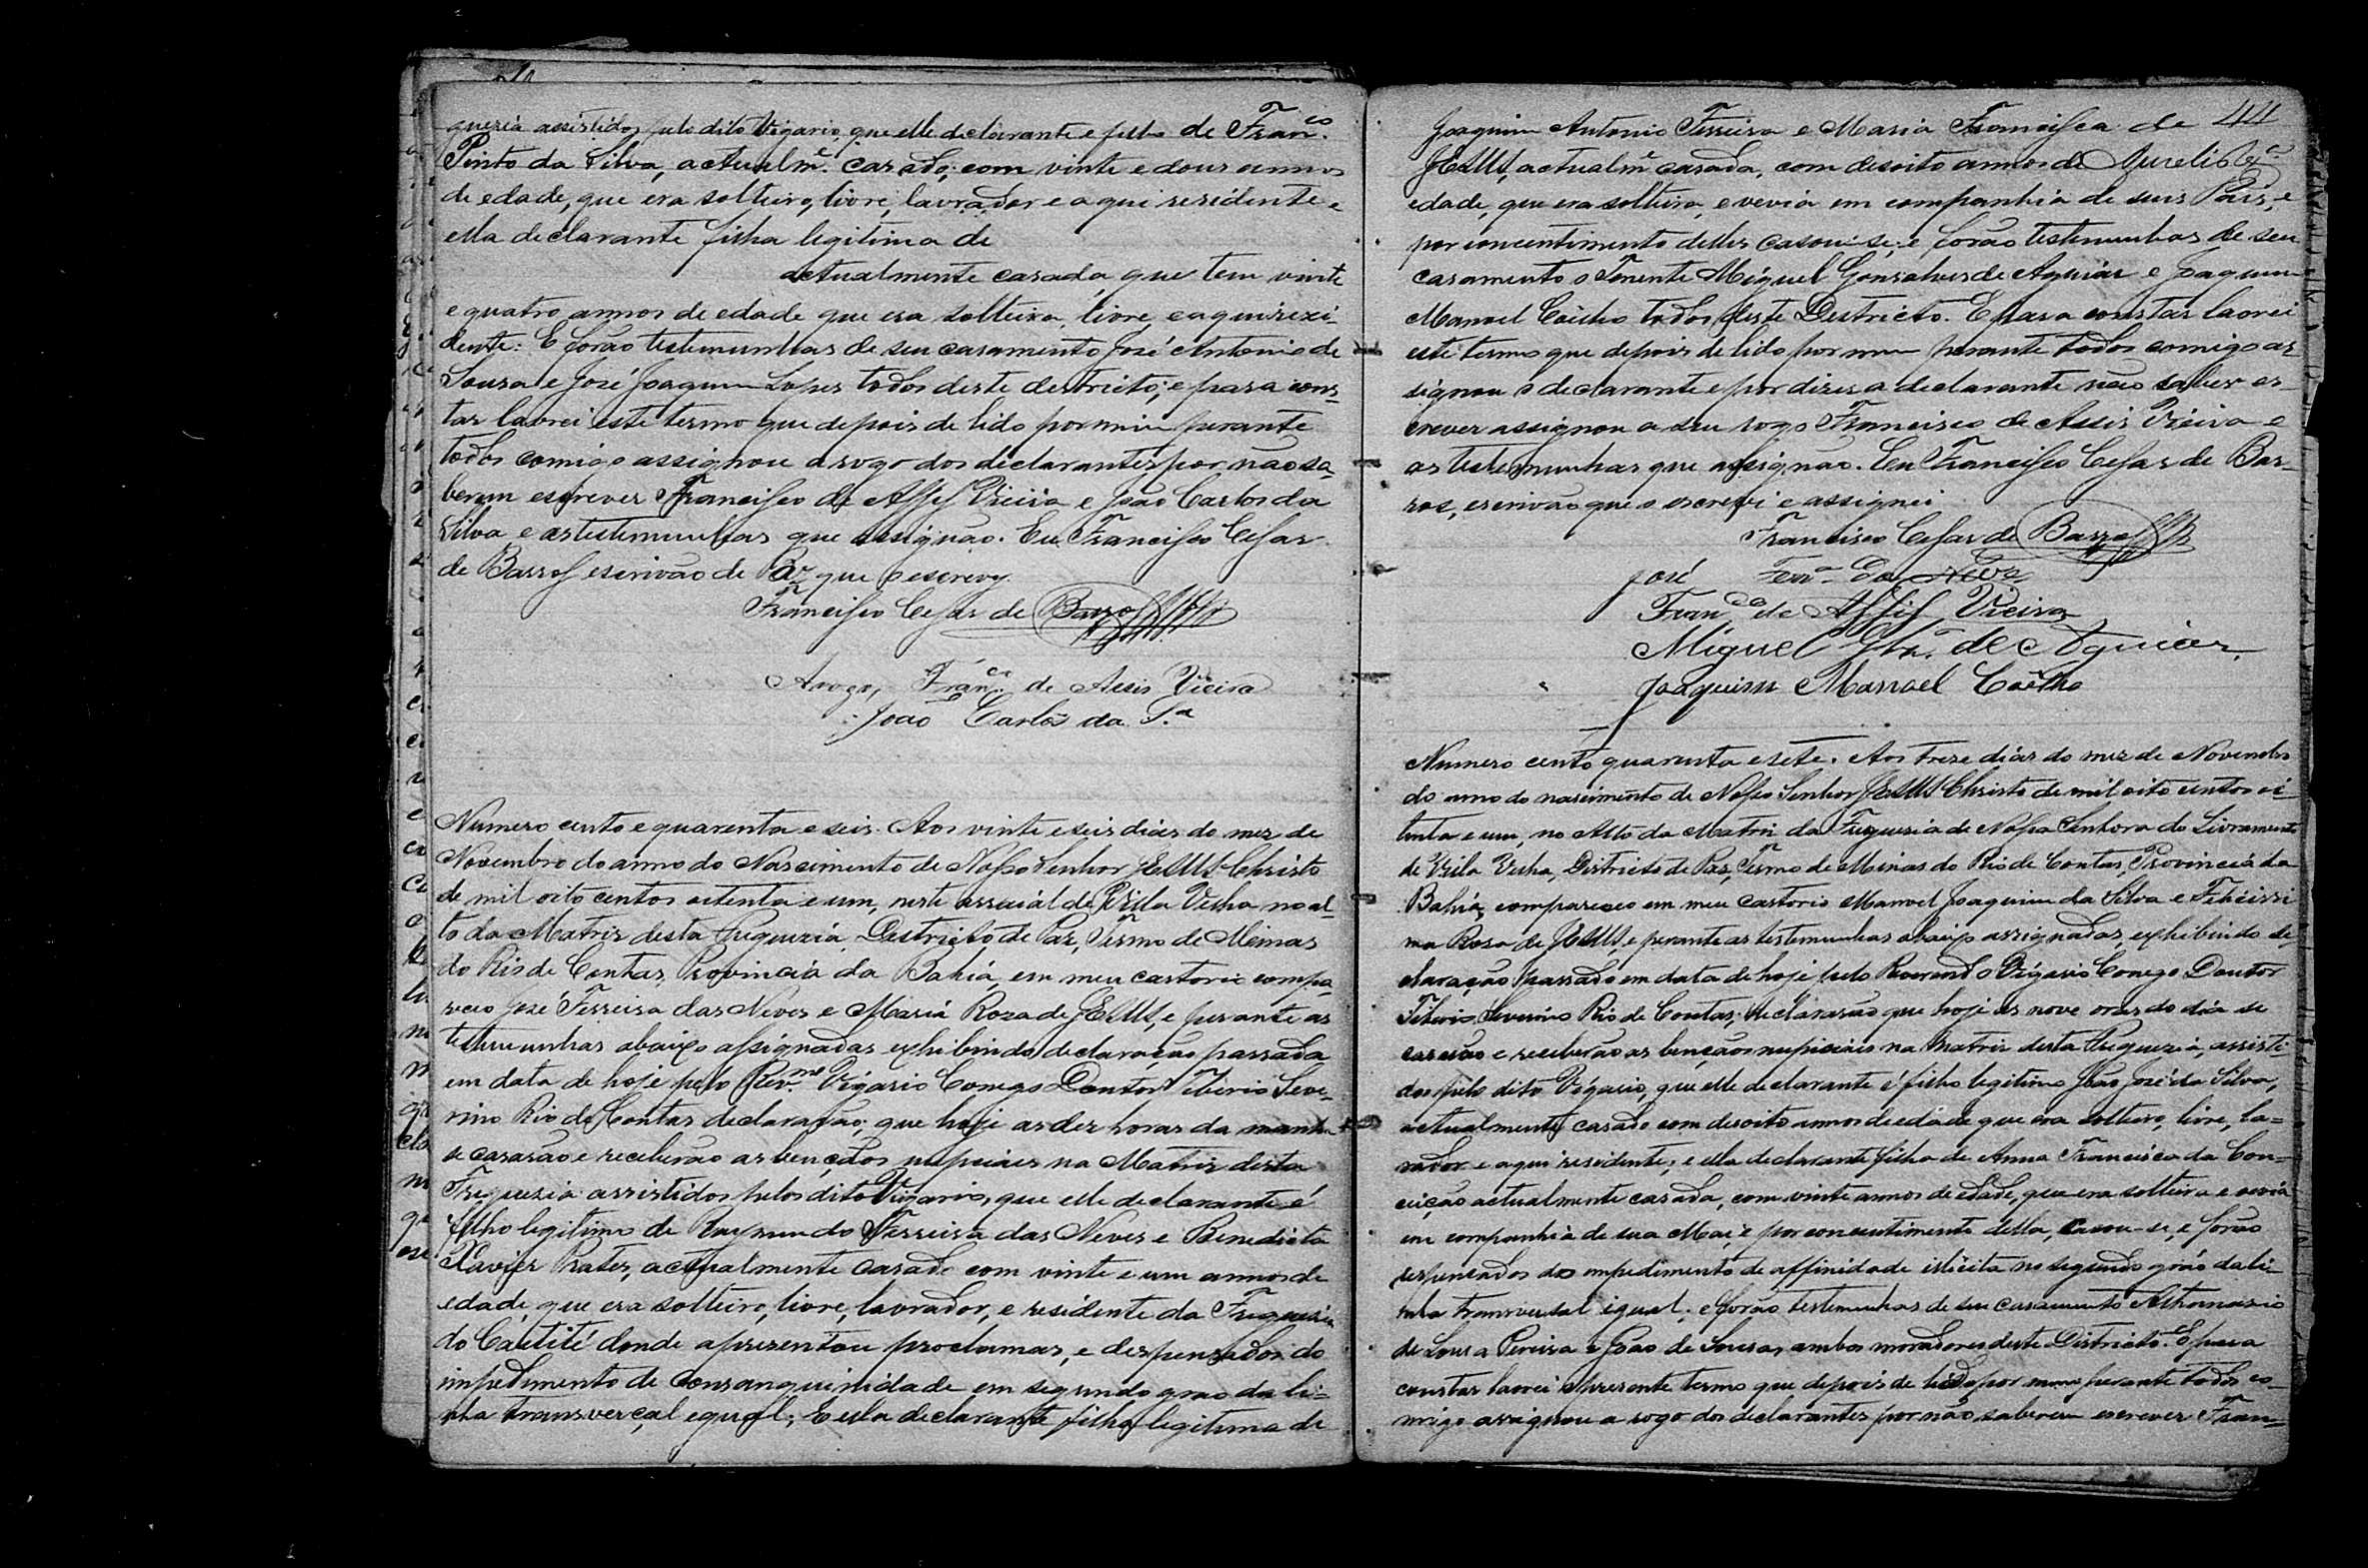 guezia assistidos pelo dito Vigario, que elle declarante e filho de Fran.co
Pinto da Silva, actualm.e casado, com vinte e dous annos
de edade, que era solteiro, livre, lavrador e aqui residente e
ella declarante filha legitima de
actualmente casada, que tem vinte
e quatro annos de edade que era solteira, livre, e aqui rezi-
dente: E forão testemunhas de seu casamento José Antonio de
Sousa e José Joaquim Lopes todos deste destricto; e para cons-
tar lavrei este termo que depois de lido por mim perante
todos comigo assignou a rogo dos declarantes por não sa-
berem escrever Francisco de Assis Vieira e João Carlos da
Silva e as testemunhas que assignão. Eu Francisco Cesar
de Barros escrivão de Paz que o escrevy.
Francisco Cesar de Barros
Arogo, Fran.co de Assis Vieira
João Carlos da S.a
Numero cento e quarenta e seis. Aos vinte e seis dias do mez de
Novembro do anno do Nascimento de Nosso Senhor JESUS Christo
de mil oito centos oitenta e um, neste arraial de Villa Velha no al-
to da Matriz desta Freguezia, Destricto de Paz, Termo de Minas
do Rio de Contas, Provincia da Bahia, em meu cartorio compa-
receo José Ferreira das Neves e Maria Roza de JESUS, e perante as
testemunhas abaixo assignadas exhibindo declaração passada
em data de hoje pelo Rev.mo Vigario Conego Doutor Tiberio Seve-
rino Rio de Contas declararão; que hoje as dez horas da manhã
se casarão e receberão as bençãos nupciaes na Matriz desta
Freguezia assistidos pelos dito Vigario, que elle declarante é
filho legitimo de Raymundo Ferreira das Neves e Benedicta
Xavier Prates, actualmente casado com vinte e um annos de
edade, que era solteiro, livre, lavrador, e residente da Freguezia
do Caetité donde apresentou proclamas, e despensados do
impedimento de Consanguinidade em segundo grao da li-
nha transverçal egual; E ella declarante filha legitima de
44
Joaquim Antonio Ferreira e Maria Francisca de
JESUS, actualm.e casada, com desoito annos de
edade, que era solteira, e vevia em companhia de seus Pais, e
por concentimento delles casou-se; e forão testemunhas de seu
casamento o Tenente Miguel Gonsalves de Aguiar e Joaquim
Manoel Coêlho todos deste Destricto. E para constar lavrei
este termo que depois de lido por mim perante todos comigo as-
signou o declarante e por dizer a declarante não saber es-
crever assignou a seu rogo Francisco de Assis Vieira e
as testemunhas que assignão. Eu Francisco Cesar de Bar-
ros, escrivão que o escrevi e assignei
Francisco Cesar de Barros
José Ferr.a das Neves
Fran.co de Assis Vieira
Miguel Glz. de Aguiar
Joaquim Manoel Coêlho
Numero cento quarenta e sete. Aos treze dias do mez de Novembro
do anno do nascimento de Nosso Senhor JESUS Christo de mil oito centos oi-
tenta e um, no Alto da Matriz da Freguezia de Nossa Senhora do Livramento
de Villa Velha, Districto de Paz, Termo de Minas do Rio de Contas, Provincia da
Bahia, compareceo em meu cartorio Manoel Joaquim da Silva e Felicissi
ma Rosa de JESUS, e perante as testemunhas abaixo assignadas, exhibindo de-
claração passado em data de hoje pelo Reverendo Vigario Conego Doutor
Tiberio Severino Rio de Contas; declararão que hoje as nove oras do dia se
casarão e receberão as bençãos nupciais na Matriz desta Freguezia, assisti-
dos pelo dito Vigario, que elle declarante é filho legitimo João José da Silva,
actualmente casado com desoito annos de edade que era solteiro, livre, la-
vrador e aqui residente; e ella declarante filha de Anna Francisca da Con-
ceição actualmente casada, com vinte annos de edade, que era solteira e vevia
em companhia de sua Mai, e por consentimento della, casou-se, e forão
despensados dos empedimento de affinidade illicita no segundo gráo da li-
nha transversal igual; e forão testemunhas de seu casamento Athanasio
de Sousa Pereira e João de Sousa, ambos moradores deste Districto. E para
constar lavrei o presente termo que depois de lido por mim perante todos co-
migo assignou a rogo dos declarantes por não saberem escrever Fran-